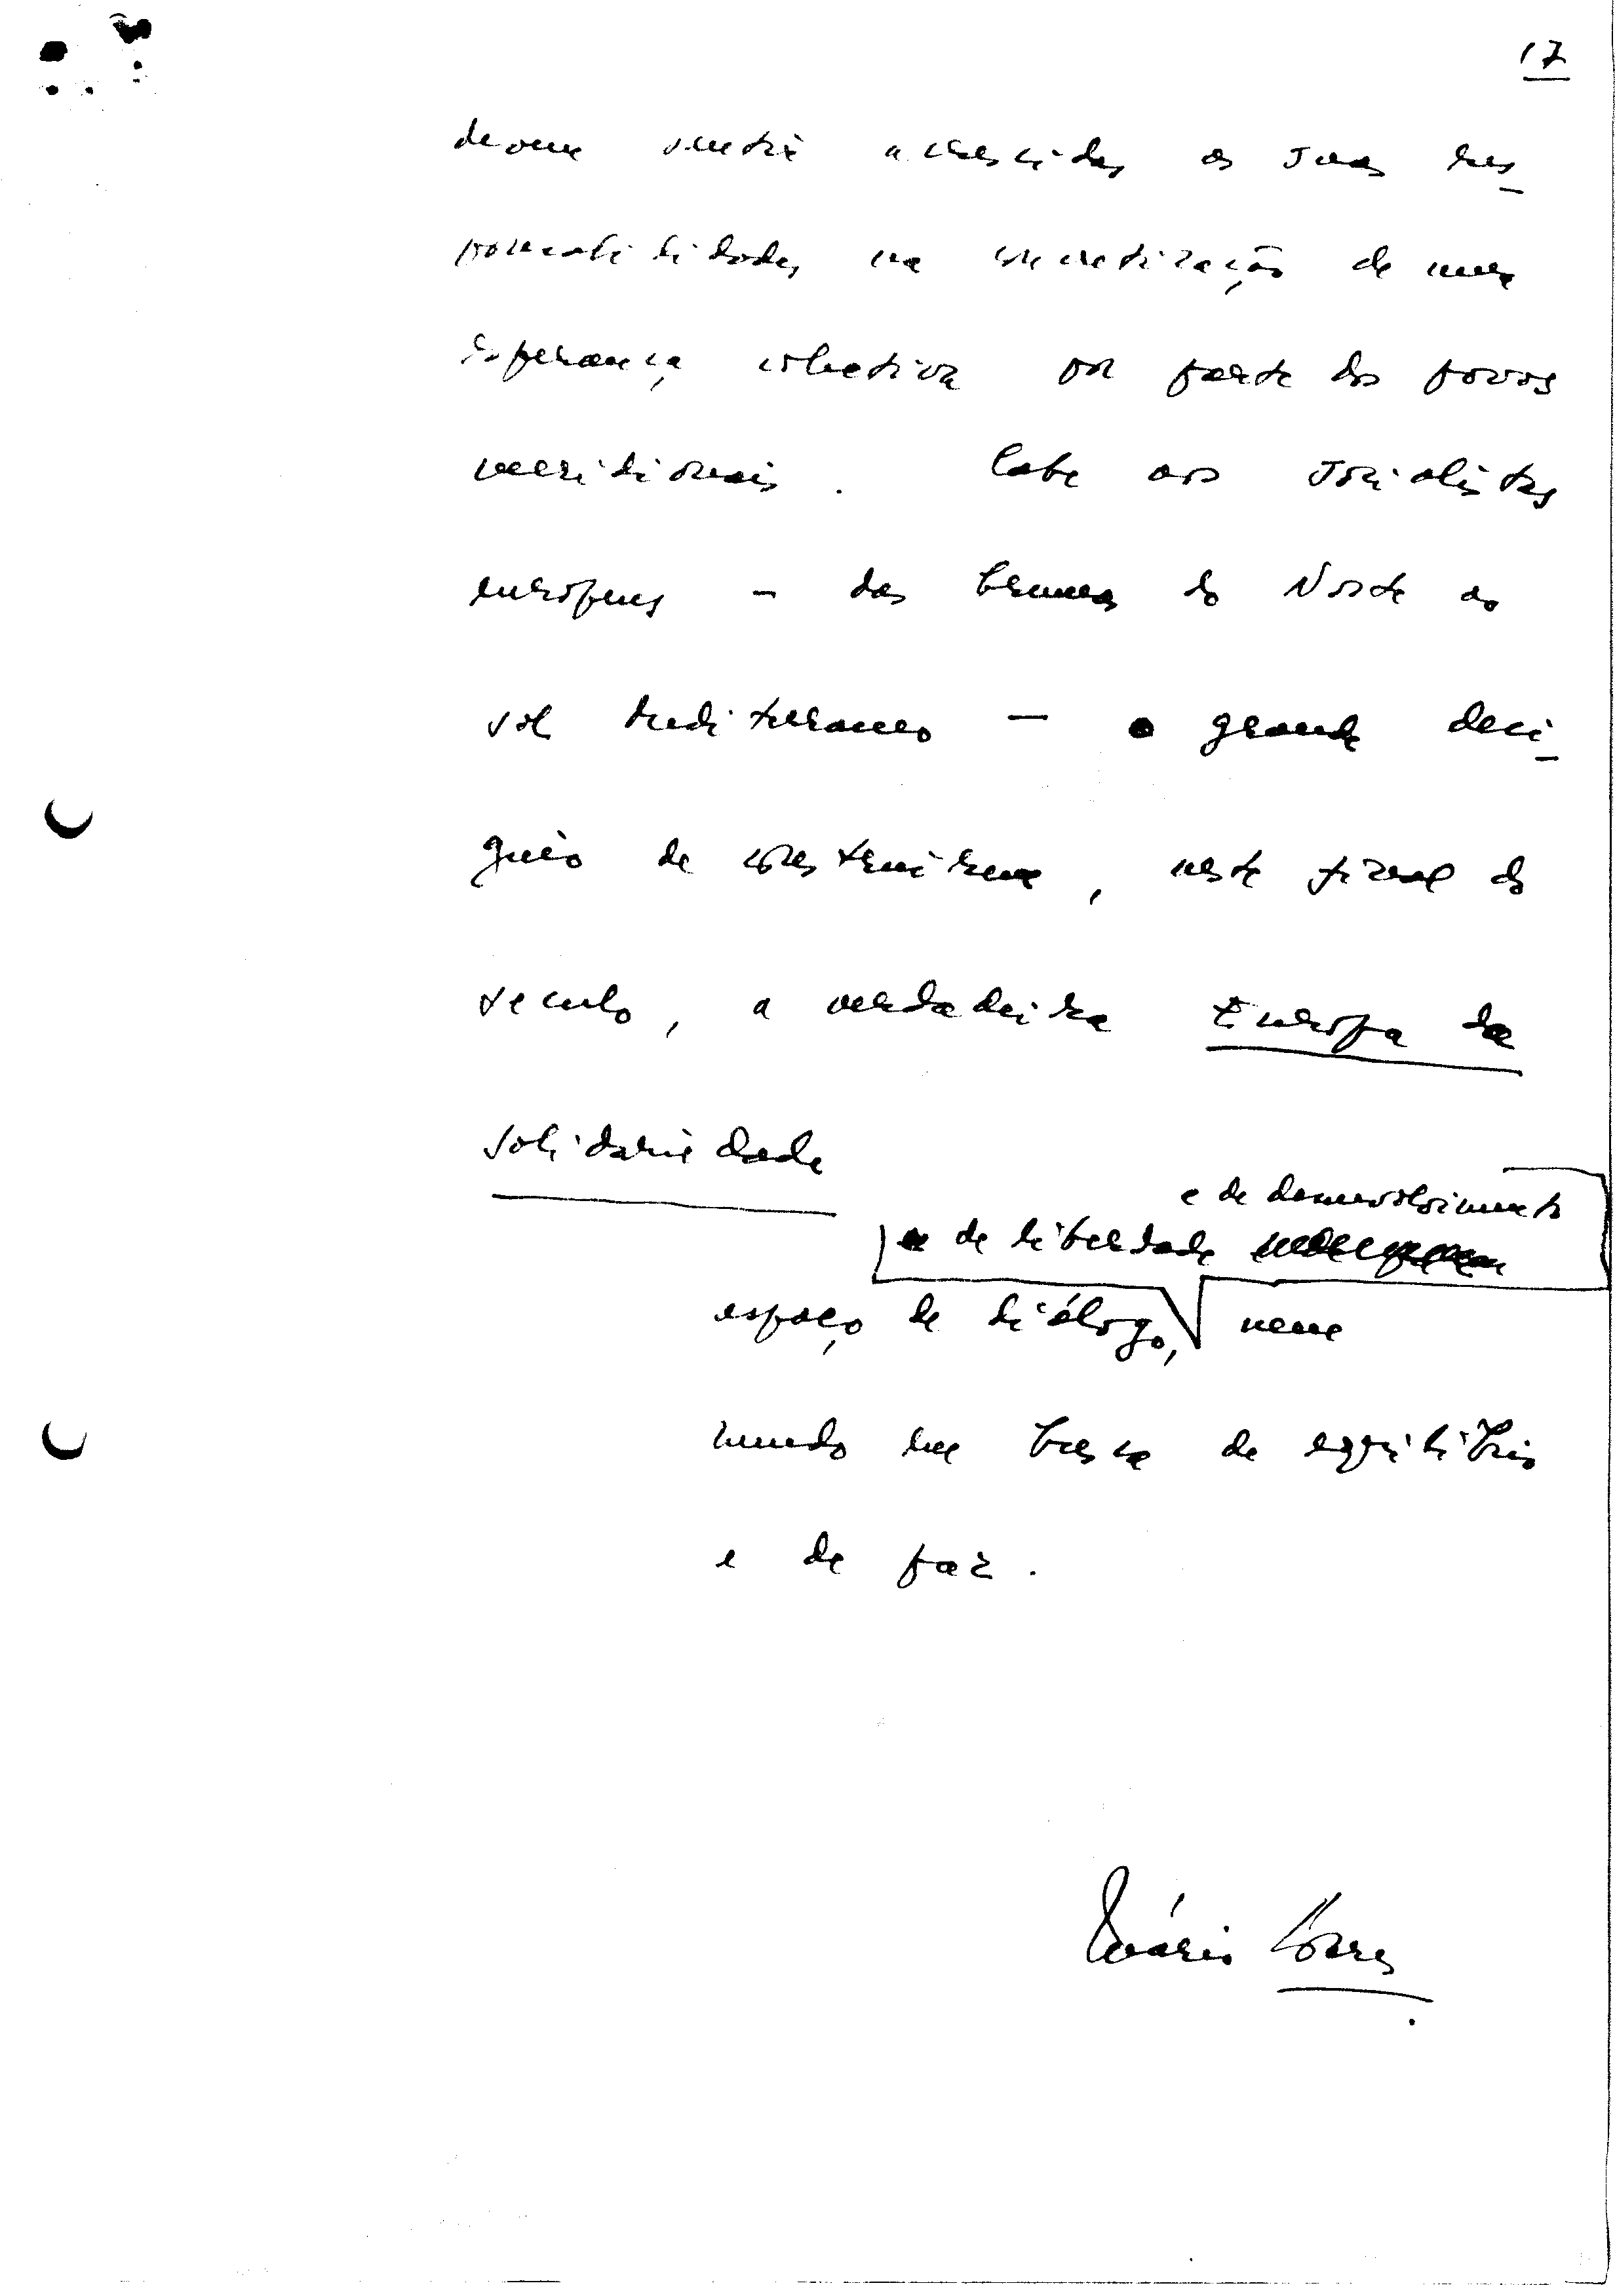 17
devem sentir acrescidas as suas res-
ponsabilidades na concretização de uma
esperança colectiva por parte dos povos
meridionais. Cabe aos socialistas
europeus - das brumas do Norte ao
sol mediterraneo - o grande desi-
gnio de construirem, neste final do
seculo, a verdadeira Europa da
solidariedade
e de desenvolvimento
de liberdade
espaço de diálogo, num
mundo em busca de equilibrio
e de paz.
Mário Soares